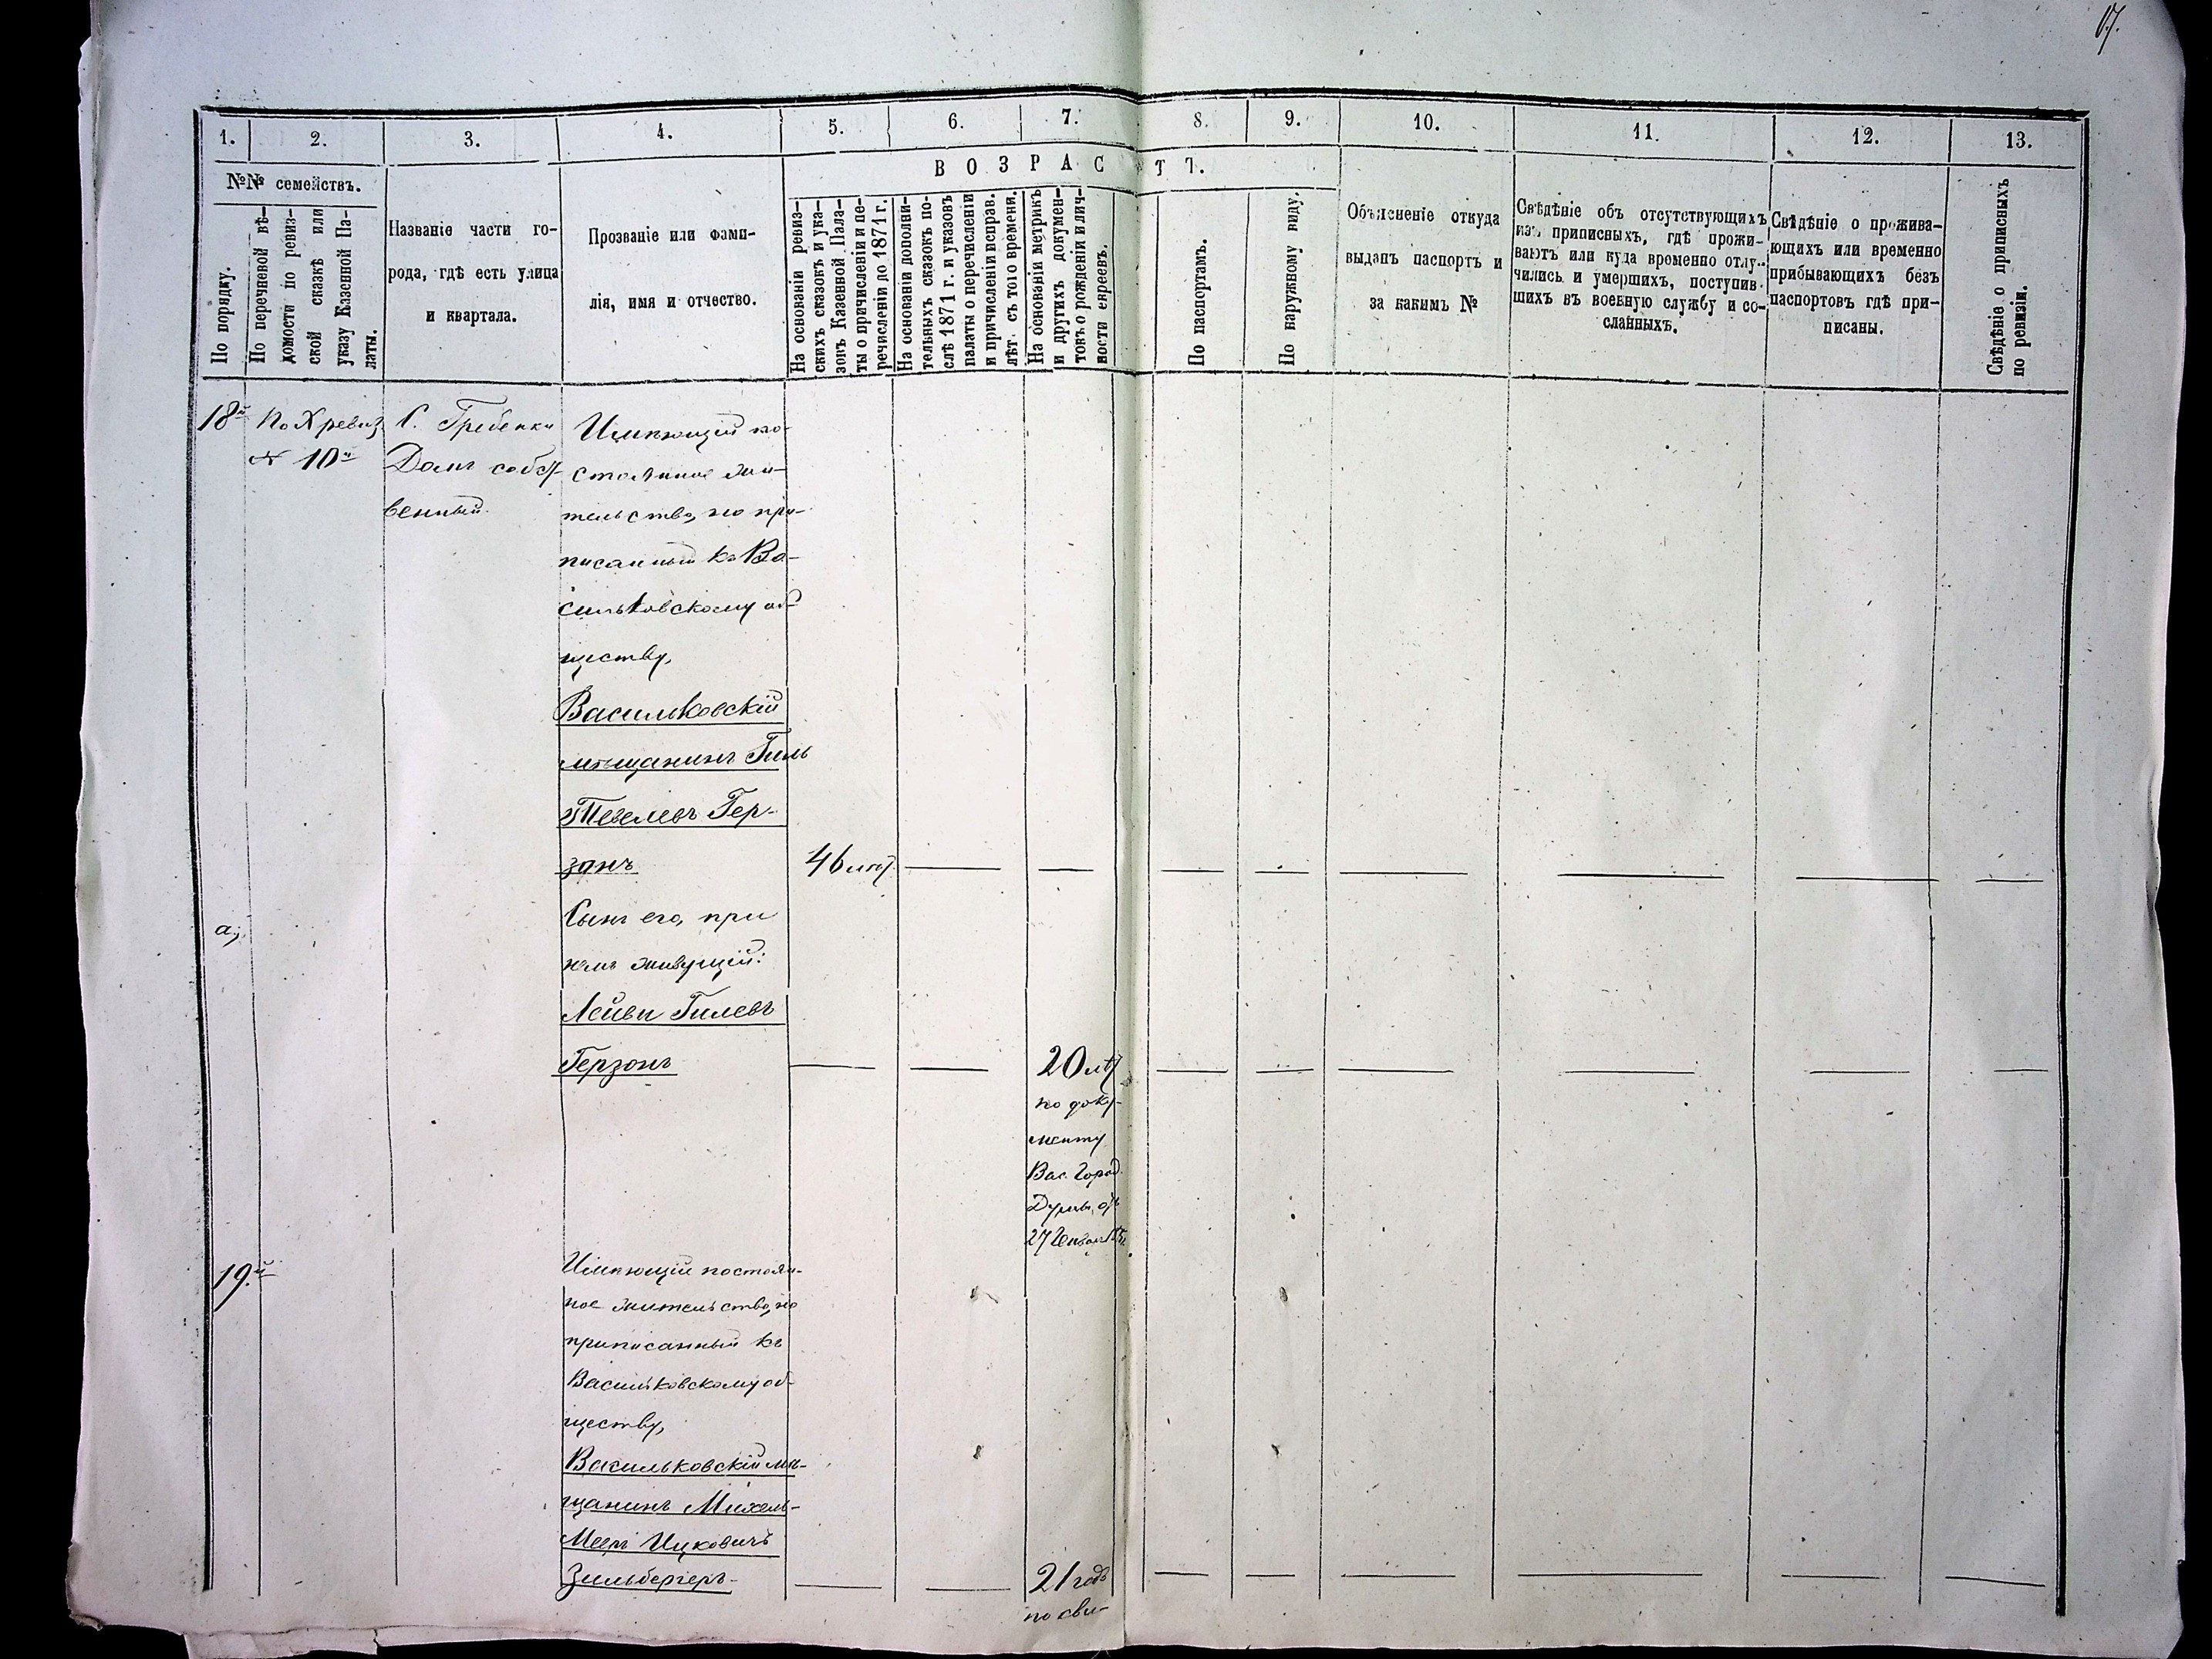 67.
1.
2.
3.
4.
5.
6.
7.
8.
9.
10.
11.
12.
13.
№№ семействъ.
ВОЗРАСТЪ.
По порядку.
По перечневой вѣ-
домости по ревиз-
ской сказкѣ или
указу Казенной Па-
латы.
Названіе части го-
рода, гдѣ есть улица
и квартала.
Прозваніе или фами-
лія, имя и отчество.
На основаніи ревиз-
скихъ сказокъ и ука-
зовъ Казенной Пала-
ты о причисленіи и пе-
речисленіи до 1871 г.
На основаніи дополни-
тельныхъ сказокъ по-
слѣ 1871 г. и указовъ
палаты о перечисленіи
и причисленіи исправ.
лѣт. съ того времени.
На основеніи метрикъ
и другихъ докумен-
товъ о рожденіи и лич-
ности евреевъ.
По паспортамъ.
По наружному виду.
Объясненіе откуда
выданъ паспортъ и
за какимъ №
Свѣдѣніе объ отсутствующихъ
изъ приписныхъ, гдѣ прожи-
ваютъ или куда временно отлу-
чились и умершихъ, поступив-
шихъ въ военную службу и со-
сланныхъ.
Свѣдѣніе о прожива-
ющихъ или временно
прибывающихъ безъ
паспортовъ гдѣ при-
писаны.
Свѣдѣніе о приписныхъ
по ревизіи.
18й
По X ревиз.
№ 10й
С. Гребенки
Домъ собст-
венный.
Имѣющій по-
стоянное жи-
тельство, но при-
писанный къ Ва-
сильковскому об-
ществу,
Васильковскій
мѣщанинъ Гиль
Тевелевъ Гер-
зонъ
46 лѣт.
а;
Сынъ его, при
немъ живущій:
Лейви Гилевъ
Герзонъ
20 лѣт
по доку-
менту
Вас. Город.
Думы, отъ
19.й
Имѣющій постоян-
ное жительство, но
приписанный къ
Васильковскому об-
ществу,
Васильковскій мѣ-
щанинъ Михель-
Мееръ Ицковичъ
Зильбергеръ
21 годъ
по сви-